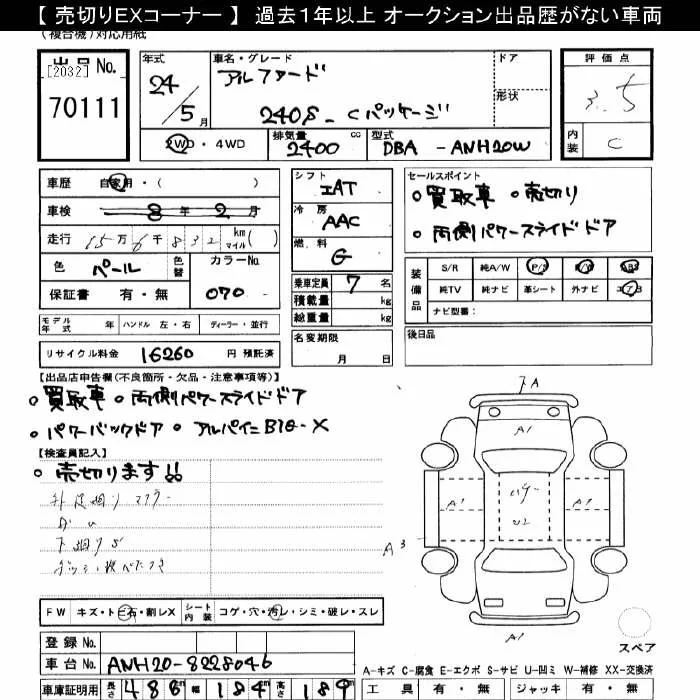 【 売切りEXコーナー 】 過去1年以上 オークション出品歴がない車両
(複合機)対応用紙
出品 No.
[2032]
70111
年式
24/5月
車名・グレード
アルファード
240S-Cパッケージ
ドア
形状
評価点
3.5
内装
C
2WD・4WD
排気量 2400 cc
型式 DBA - ANH20W
車歴 自家用・( )
車検 8年2月
走行 15万6千832 km マイル( )
色 パール 色替
カラーNo. 070
保証書 有・無
シフト IAT
冷房 AAC
燃料 G
乗車定員 7 名
積載量 kg
総重量 kg
名変期限
月 日
セールスポイント
。買取車 。売切り
。両側パワースライドドア
装備品
S/R 純A/W P/S P/W ABS
純TV 純ナビ 革シート 外ナビ エアB
ナビ型番：
後日品
モデル年式 年 ハンドル 左・右 ディーラー・並行
リサイクル料金 16260 円 預託済
【出品店申告欄(不良箇所・欠品・注意事項等)】
。買取車 。両側パワースライドドア
。パワーバックドア 。アルパインBIG-X
【検査員記入】
。売切ります!!
下廻りS
A1
A1
A1
A3
A1
FW キズ・トビ石・割レX シート内装 コゲ・穴・汚レ・シミ・破レ・スレ
登録 No.
車台 No. ANH20-8228046
車庫証明用 長さ 486m 幅 184m 高さ 189m
スペア
A-キズ C-腐食 E-エクボ S-サビ U-凹ミ W-補修 XX-交換済
工具 有・無 ジャッキ 有・無